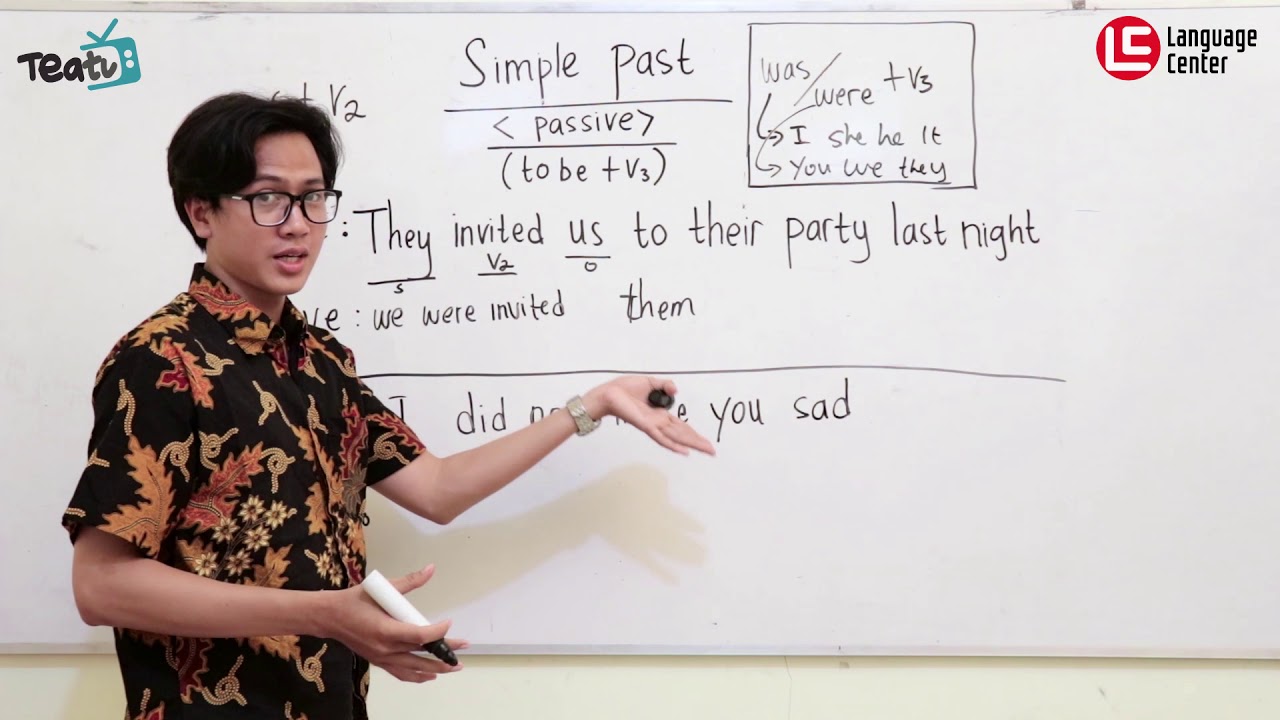 Teatv
LC Language Center
+ V2
Simple Past
< passive>
(to be + V3)
was / were + V3
I she he It
You we they
: They invited us to their party last night
S V2 O
ve : we were invited them
I did you sad